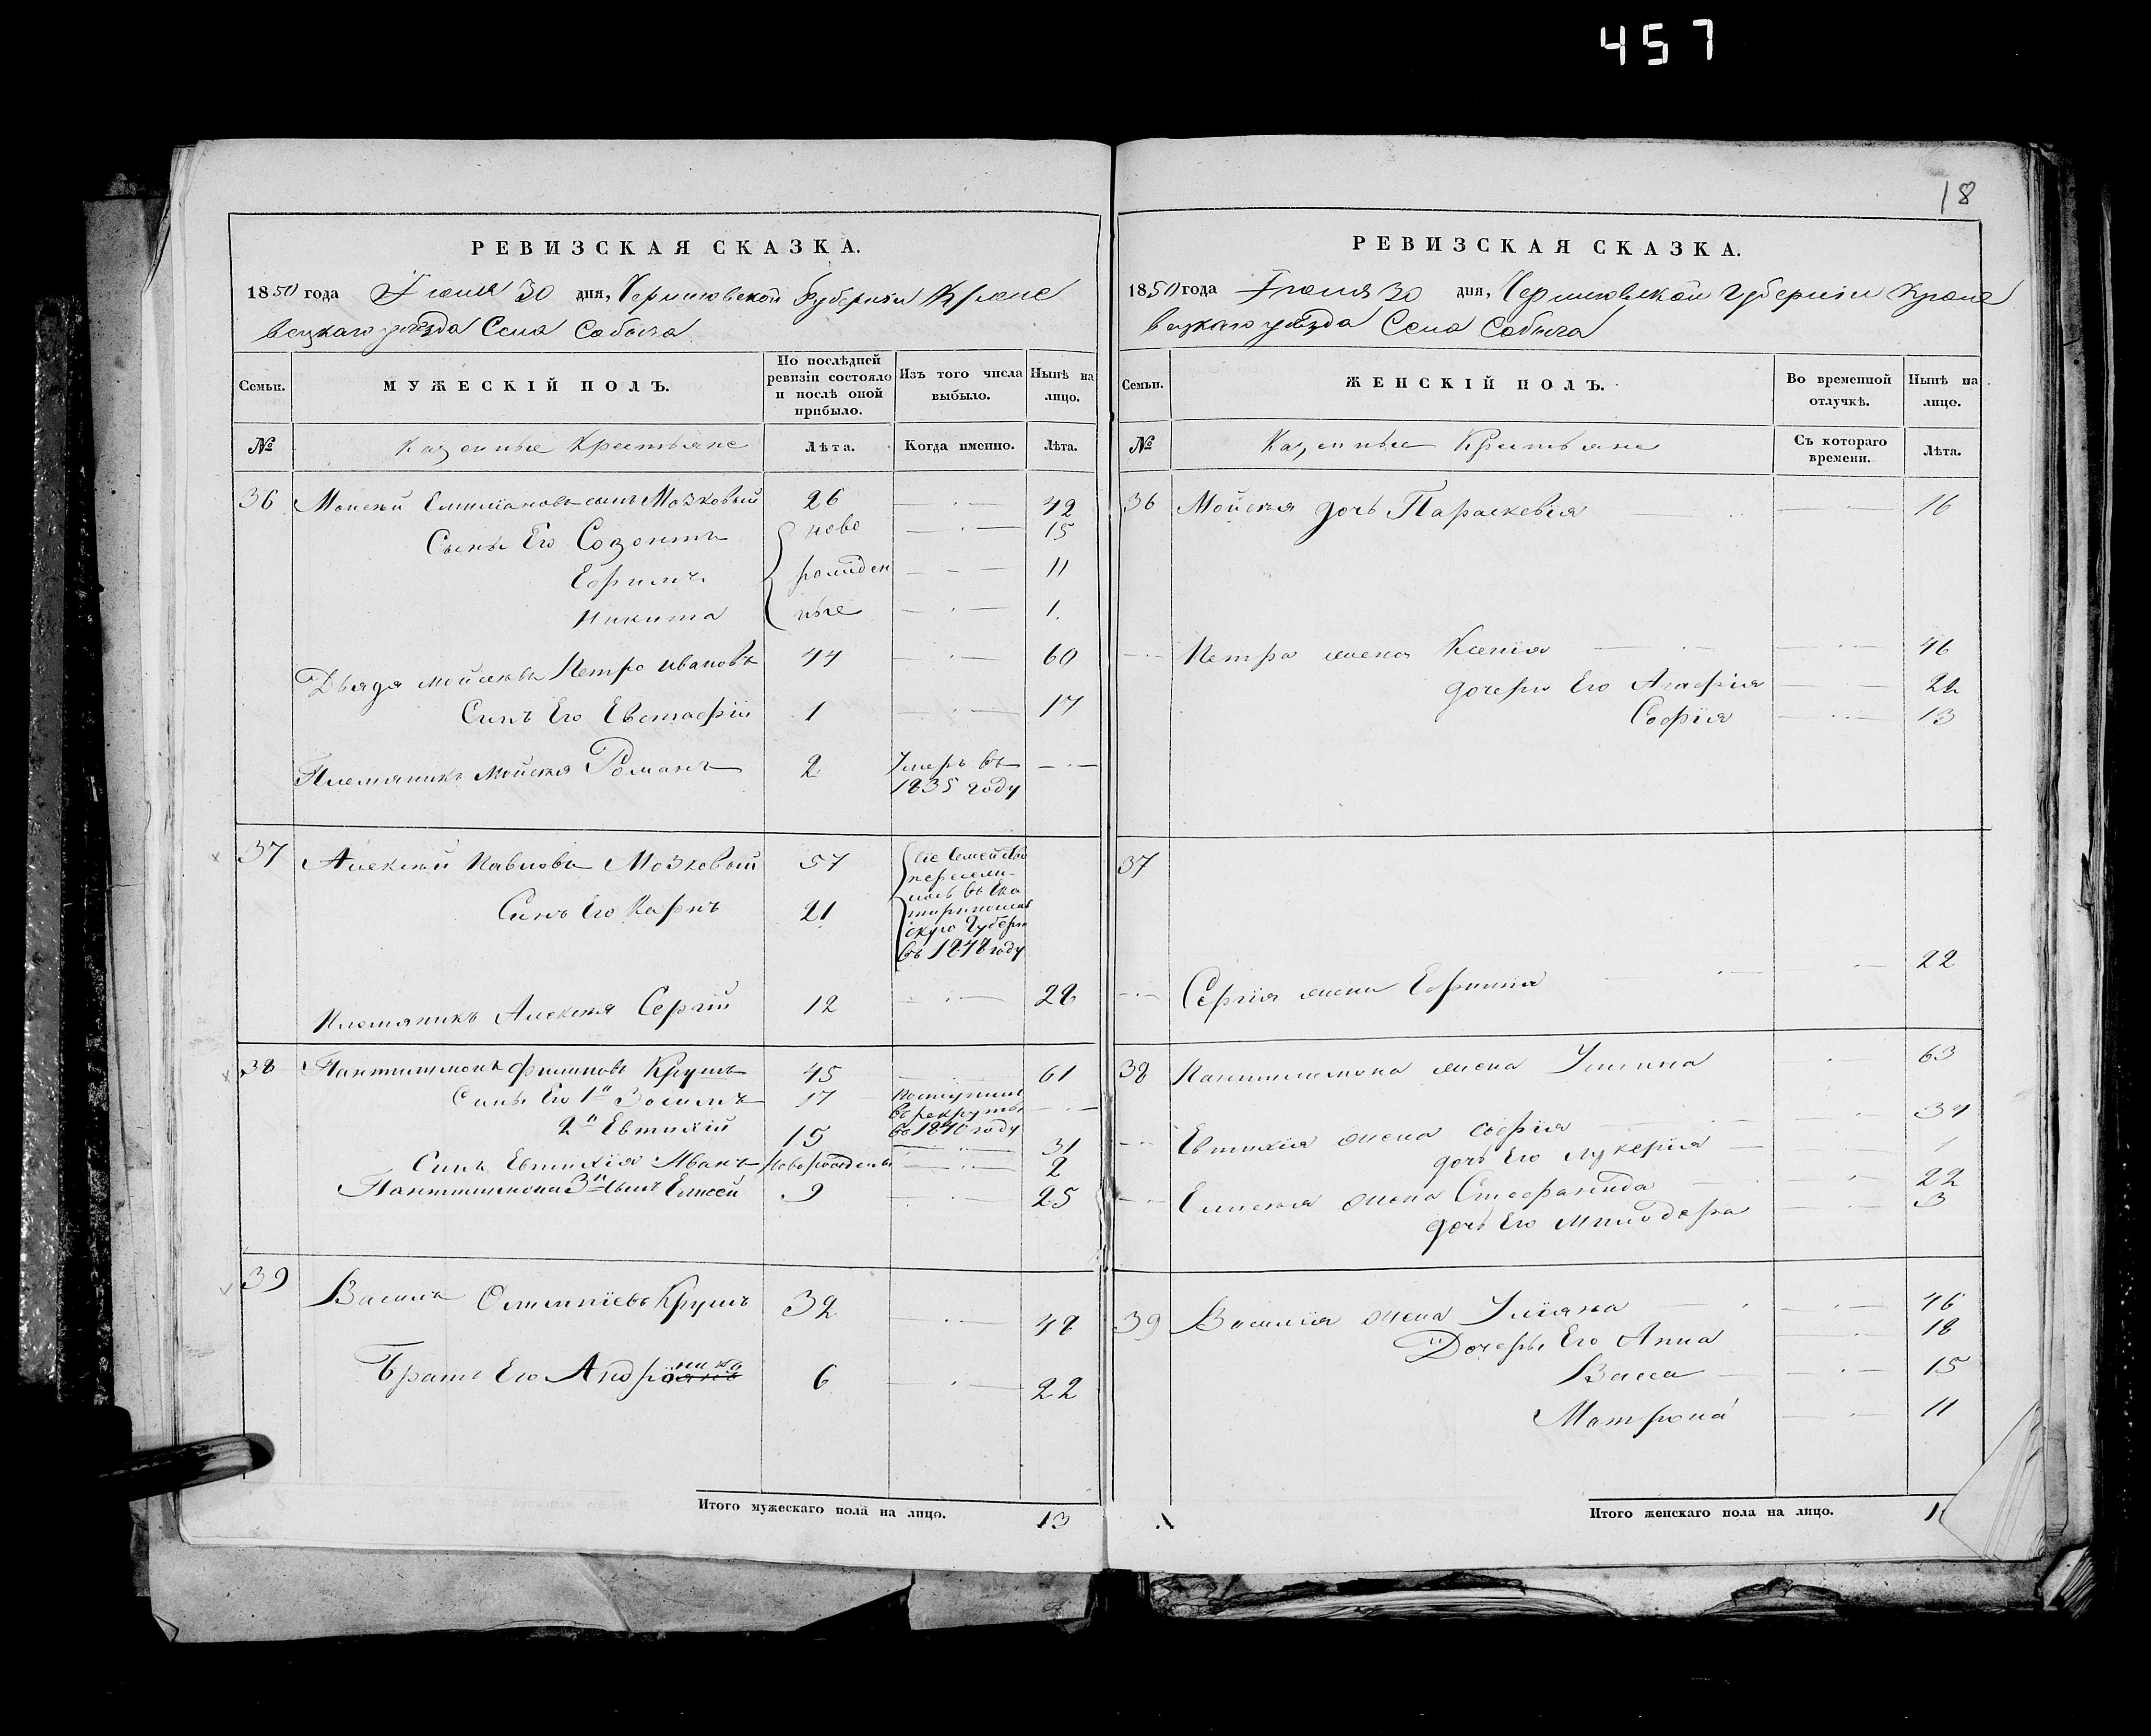 457
18
РЕВИЗСКАЯ СКАЗКА.
1850 года Іюня 30 дня, Черниговской Губерніи Кроле
вецкаго уѣзда Села Собыча
Семьи. МУЖЕСКІЙ ПОЛЪ. По послѣдней ревизіи состояло и послѣ оной прибыло. Изъ того числа выбыло. Нынѣ на лицо.
№ Казенные Крестьяне Лѣта. Когда именно. Лѣта.
36 Моисей Емилiановъ сынъ Мозковый 26 42
Сыны Его Созонтъ ново 15
Ефримъ рожден 11
Никита ные 1.
Дядя Мойсея Петро Ивановъ 44 60
Сынъ Его Евстафій 1 17
Племяникъ Мойсея Романъ 2 Умеръ въ
1835 году
37 Алексей Павловъ Мозковый 57 Сіе Семейство
пересели-
лось въ Ека
Сынъ Его Карпъ 21 теринослав
скую Губерн
въ 1848 году
Племяникъ Алексея Сергій 12 28
38 Пантилимонъ Филиповъ Крушъ 45 61
Сыны Его 1й Зосимъ 17 Поступилъ
въ рекруты
2й Евтихій 15 въ 1840 году 31
Сынъ Евтихія Иванъ Новорожденый 2
Пантилимона 3й сынъ Елисей 9 25
39 Василъ Олимпіевъ Крушъ 32 48
Братъ Его Андроника 6 22
Итого мужескаго пола на лицо. 13
РЕВИЗСКАЯ СКАЗКА.
1850 года Іюня 30 дня, Черниговской Губерніи Кроле
вецкаго уѣзда Села Собыча
Семьи. ЖЕНСКІЙ ПОЛЪ. Во временной отлучкѣ. Нынѣ на лицо.
№ Казенные Крестьяне Съ котораго времени. Лѣта.
36 Мойсея дочь Параскевія 16
Петра жена Ксенія 46
дочери Его Агафія 22
Софія 13
37
Сергія жена Ефимія 22
38 Пантилимона жена Улиана 63
Евтихія жена Софія 34
дочь Его Лукерія 1
Елисея жена Стефанида 22
дочь Его Минодора 3
39 Василія жена Уліяна 46
Дочеры Его Анна 18
Васса 15
Матрона 11
Итого женскаго пола на лицо. 1